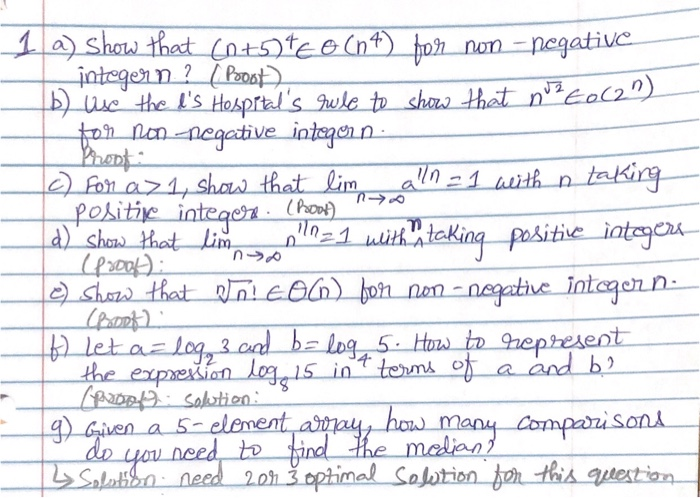 1 a) Show that (n+5)⁴ ∈ Θ(n⁴) for non-negative
integer n? (Proof)
b) Use the L's Hospital's rule to show that n^√2 ∈ o(2ⁿ)
for non-negative integer n.
Proof:
c) For a > 1, show that lim n→∞ a^1/n = 1 with n taking
positive integers. (Proof)
d) show that lim n→∞ n^1/n = 1 with n taking positive integers
(proof):
e) Show that ⁿ√n! ∈ Θ(n) for non-negative integer n.
(Proof):
f) Let a = log₂ 3 and b = log₄ 5. How to represent
the expression log₈ 15 in terms of a and b?
(Proof): solution:
g) Given a 5-element array, how many comparisons
do you need to find the median?
↳ Solution. need 2 or 3 optimal Solution for this question